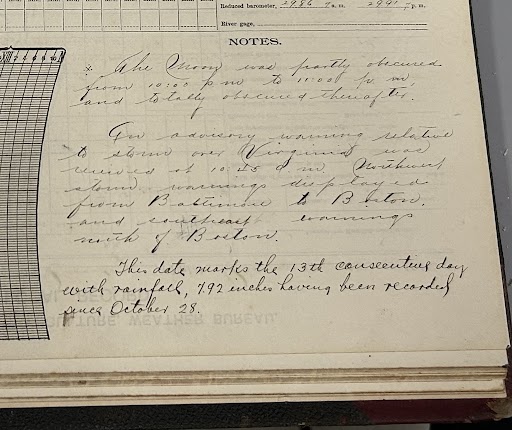 Reduced barometer, 2986 7 a.m. 2991 7 p.m.
River gage,
NOTES.
* The Moon was partly obscured
from 10:00 p m to 11:00 p. m,
and totally obscured thereafter.
An advisory warning relative
to storm over Virginia was
received at 10 45 a m. Northwest
storm warnings displayed
from Baltimore to Boston.
and southeast warnings
north of Boston.
This date marks the 13th consecutive day
with rainfall, 7.92 inches having been recorded
since October 28.
WEATHER BUREAU.